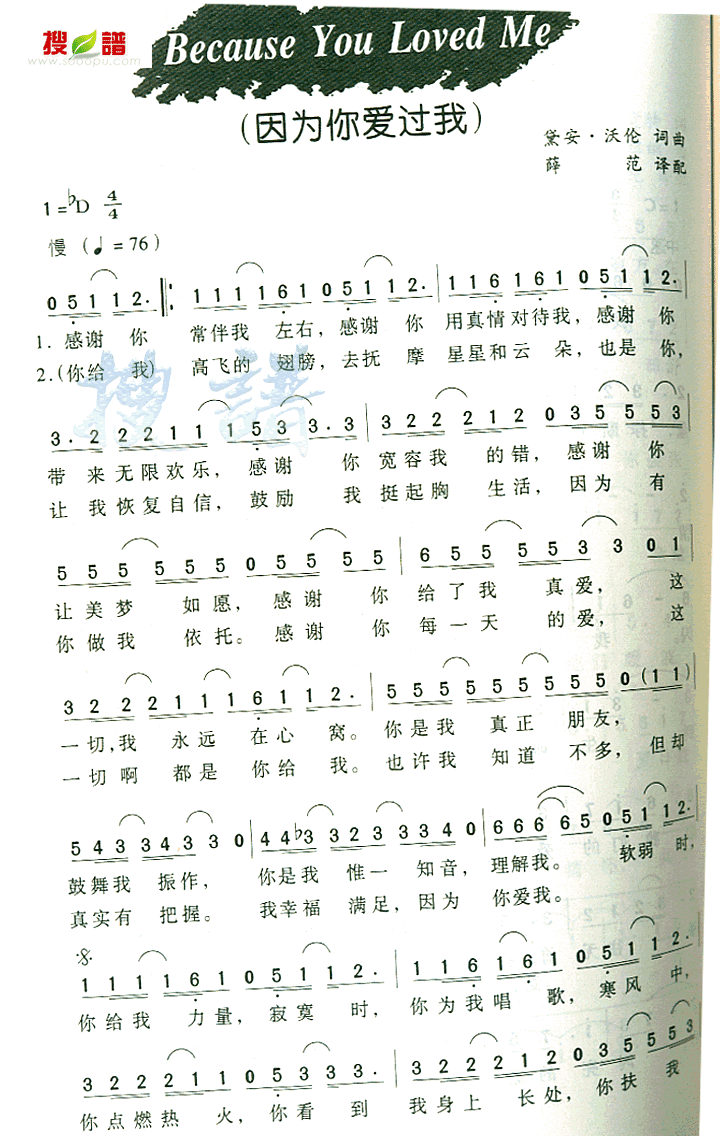 搜谱
www.sooopu.com
Because You Loved Me
(因为你爱过我)
黛安·沃伦 词曲
薛 范 译配
1=♭D 4/4
慢 (♩=76)
0 5 1 1 1 2. 1 1 1 1 6 1 0 5 1 1 1 2. 1 1 6 1 6 1 0 5 1 1 1 2.
1. 感谢 你 常伴我 左右，感谢 你 用真情对待我，感谢 你
2.(你给 我) 高飞的 翅膀，去抚 摩 星星和云 朵，也是 你，
3. 2 2 2 1 1 1 5 3 3. 3 3 2 2 2 1 2 0 3 5 5 5 3
带 来无限欢乐，感谢 你 宽容我 的错，感谢 你
让 我恢复自信，鼓励 我 挺起胸 生活，因为 有
5 5 5 5 5 5 0 5 5 5 5 6 5 5 5 5 3 3 0 1
让美梦 如愿，感谢 你 给了我 真爱，这
你做我 依托。感谢 你 每一天 的爱，这
3 2 2 2 1 1 1 6 1 1 1 2. 5 5 5 5 5 5 5 5 5 5 0 (1 1)
一切,我 永远 在心 窝。你是我 真正 朋友，
一切啊 都是 你给 我。也许我 知道 不多，但却
5 4 3 3 4 3 3 0 4 4 ♭3 3 2 3 3 3 4 0 6 6 6 6 5 0 5 1 1 1 2.
鼓舞我 振作， 你是我 惟一 知音，理解我。 软弱 时，
真实有 把握。 我幸福 满足，因为 你爱我。
1 1 1 1 6 1 0 5 1 1 1 2. 1 1 6 1 6 1 0 5 1 1 1 2.
你给我 力量，寂寞 时，你为我唱 歌，寒风 中，
3 2 2 2 1 1 1 2 3 2 3 3 2 2 2 1 2 0 3 5 5 5 3
你点燃热 火，你看 到 我身上 长处，你扶 我